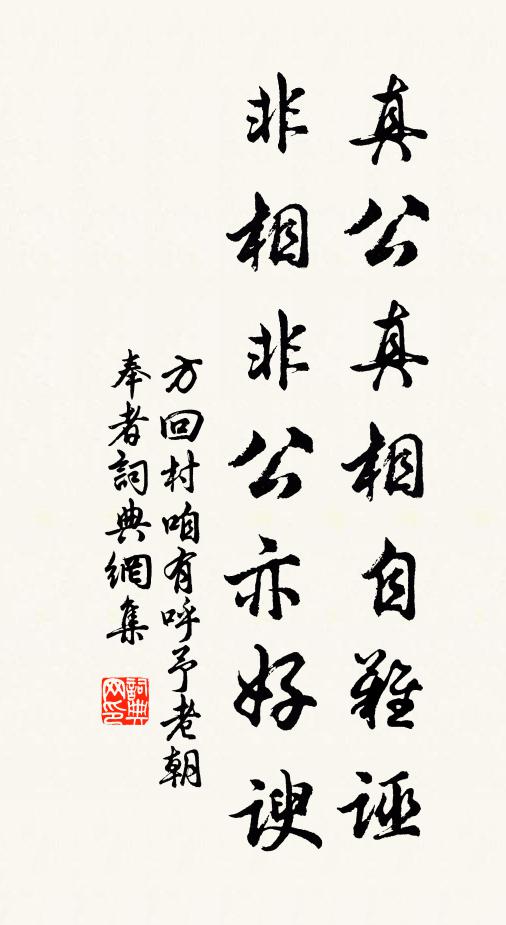 真公真相自難誣
非相非公亦好諛
方回村咱有呼予老朝
奉者詞典網集
詞典
网印